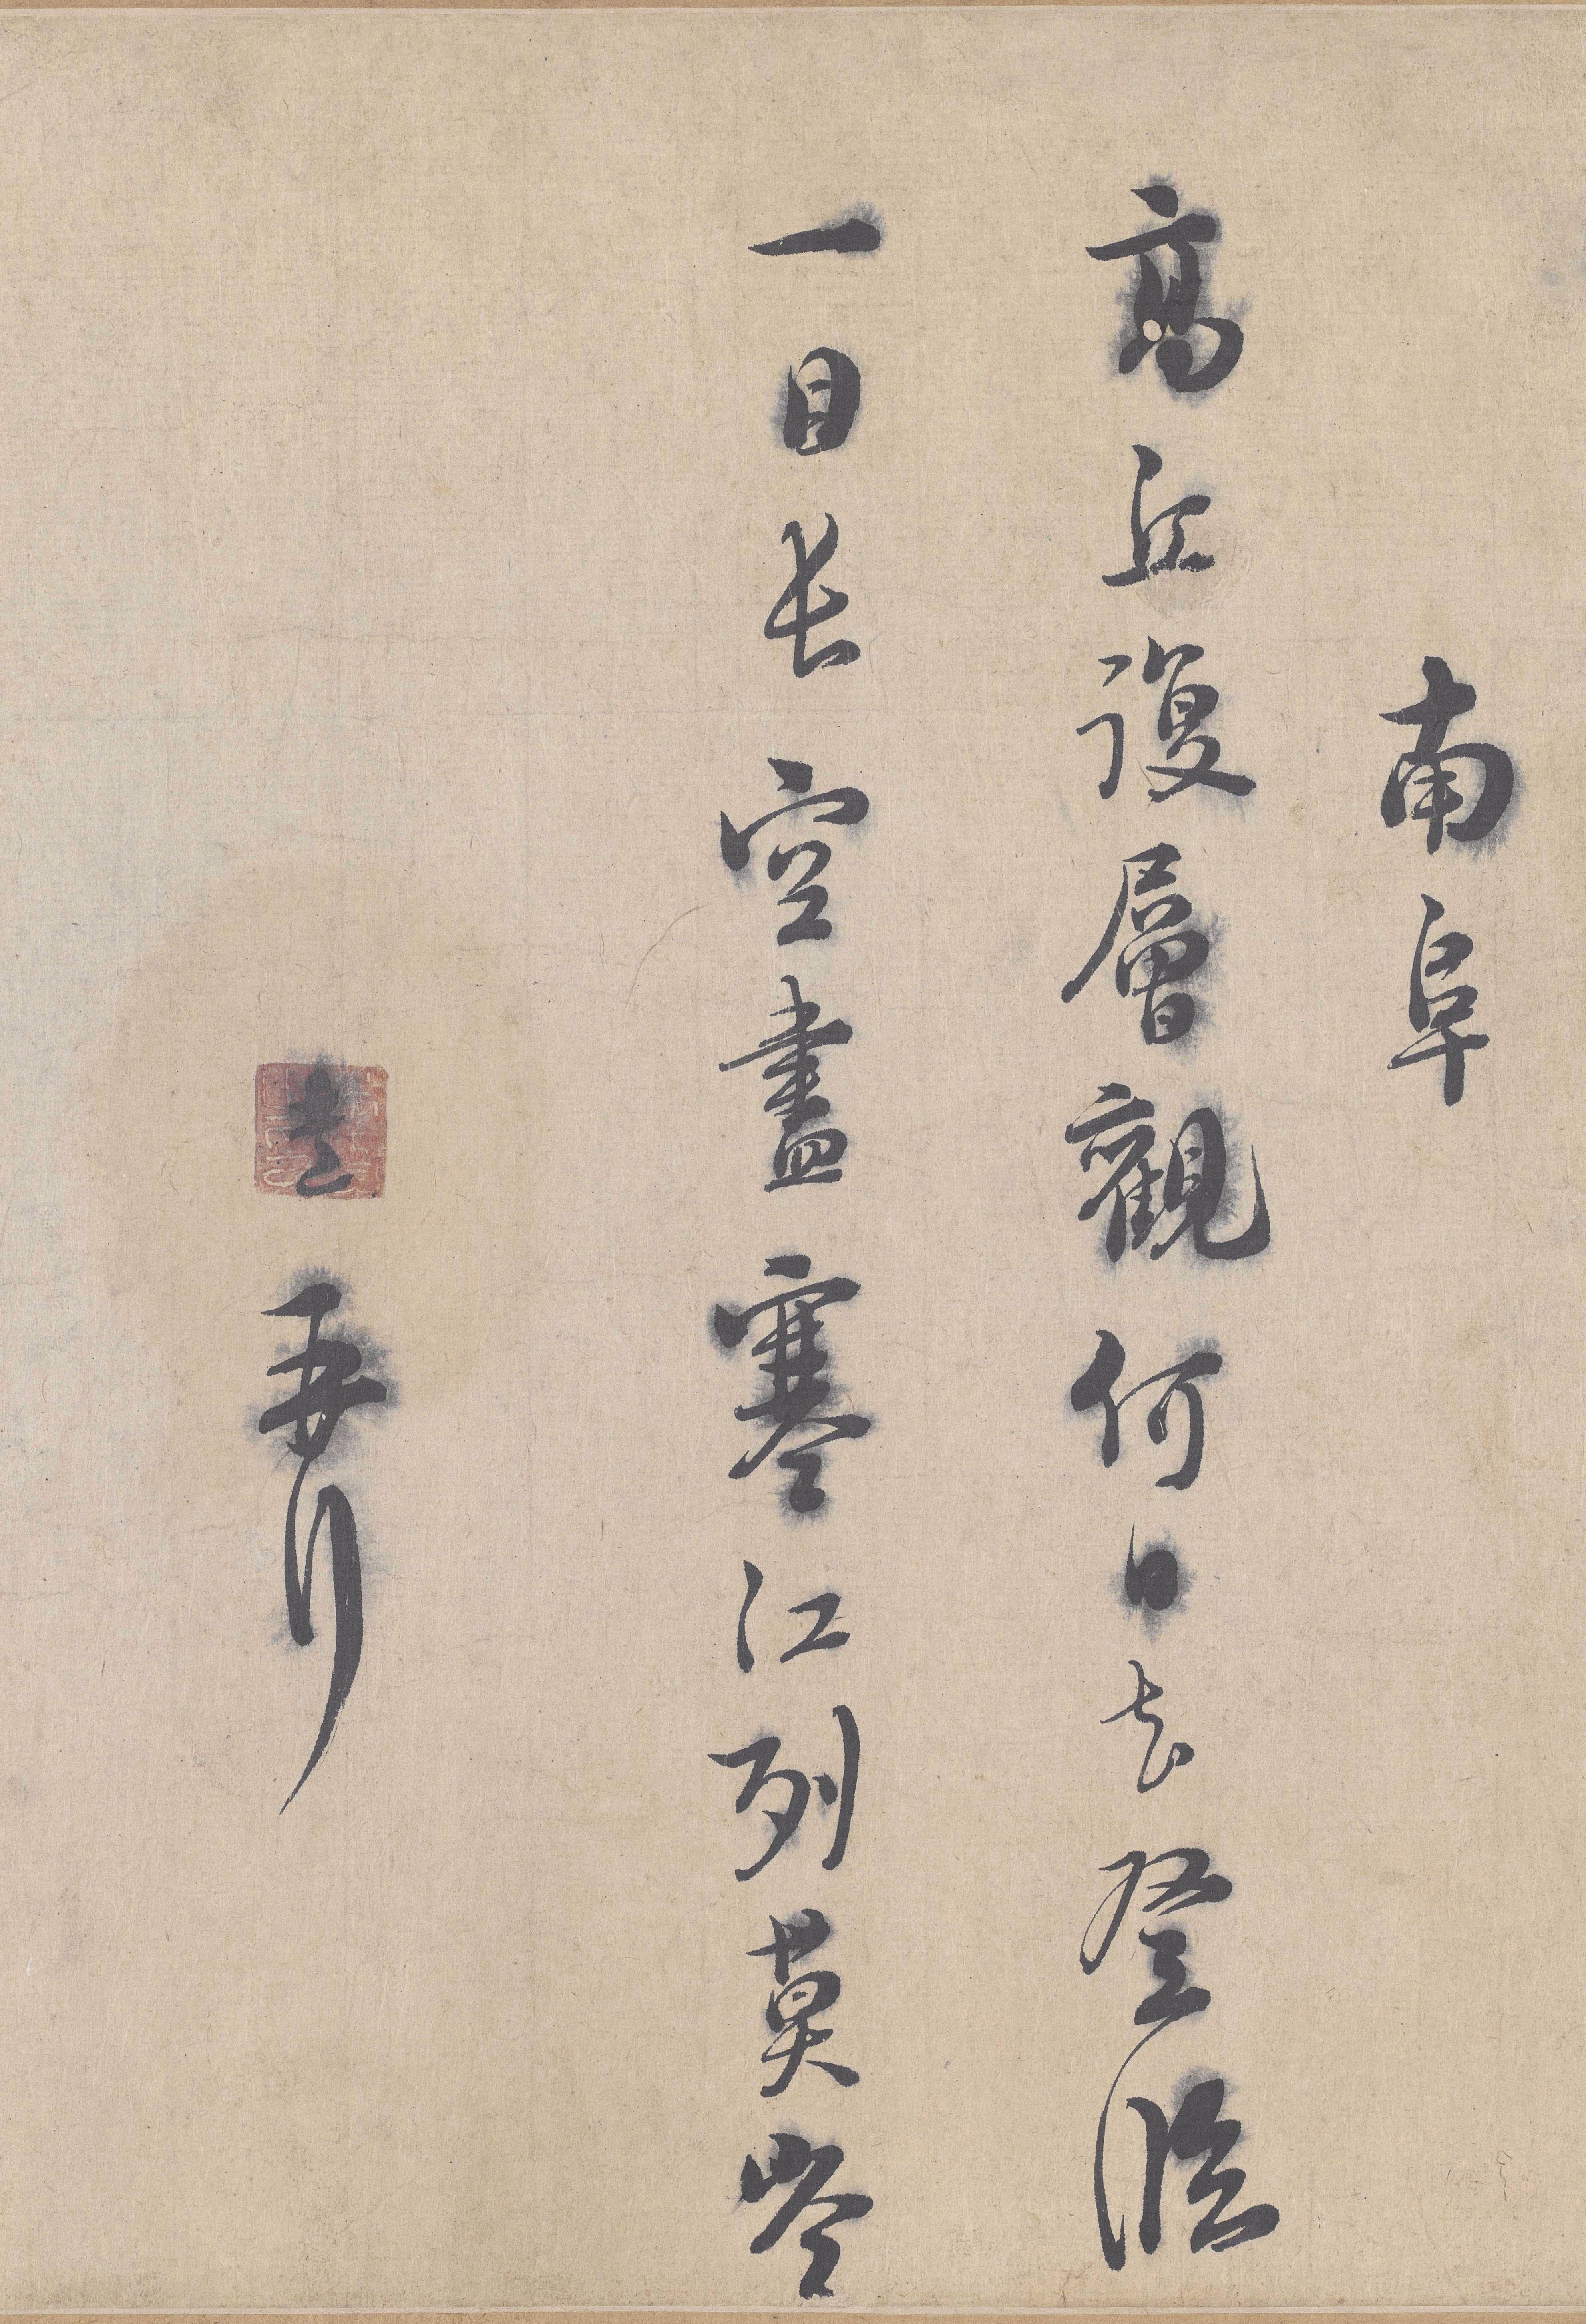 南阜
高丘復層觀何日去登臨
一目長空盡寒江列莫岑